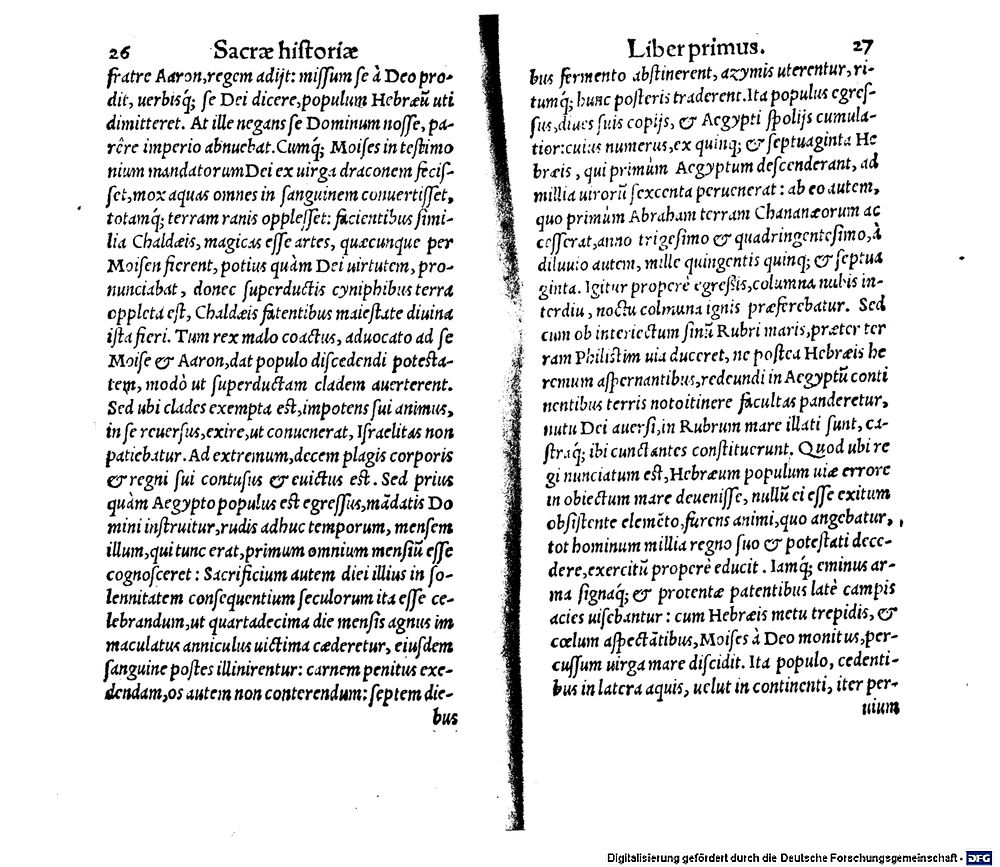 26 Sacræ historiæ
fratre Aaron,regem adijt: missum se à Deo pro-
dit, uerbisq́; se Dei dicere,populum Hebræū uti
dimitteret. At ille negans se Dominum nosse, pa-
rêre imperio abnuebat.Cumq́; Moises in testimo
nium mandatorum Dei ex uirga draconem fecis-
set,mox aquas omnes in sanguinem conuertisset,
totamq́; terram ranis opplesset: facientibus simi-
lia Chaldæis, magicas esse artes, quæcunque per
Moisen fierent, potius quàm Dei uirtutem, pro-
nunciabat, donec superductis cyniphibus terra
oppleta est, Chaldæis fatentibus maiestate diuina
ista fieri. Tum rex malo coactus, aduocato ad se
Moise & Aaron,dat populo discedendi potesta-
tem, modò ut superductam cladem auerterent.
Sed ubi clades exempta est,impotens sui animus,
in se reuersus,exire,ut conuenerat, Israelitas non
patiebatur. Ad extremum,decem plagis corporis
& regni sui contusus & euictus est. Sed prius
quàm Aegypto populus est egressus,mādatis Do
mini instruitur,rudis adhuc temporum, mensem
illum,qui tunc erat,primum omnium mensiū esse
cognosceret: Sacrificium autem diei illius in so-
lennitatem consequentium seculorum ita esse ce-
lebrandum,ut quartadecima die mensis agnus im
maculatus anniculus uictima cæderetur, eiusdem
sanguine postes illinirentur: carnem penitus exe-
dendam,os autem non conterendum: septem die-
bus
Liber primus. 27
bus fermento abstinerent, azymis uterentur, ri-
tumq́; hunc posteris traderent.Ita populus egres-
sus,diues suis copijs, & Aegypti spolijs cumula-
tior:cuius numerus,ex quinq; & septuaginta He
bræis, qui primùm Aegyptum descenderant, ad
millia uirorū sexcenta peruenerat: ab eo autem,
quo primùm Abraham terram Chananæorum ac
cesserat,anno trigesimo & quadringentesimo,à
diluuio autem, mille quingentis quinq; & septua
ginta. Igitur properè egressis,columna nubis in-
terdiu, noctu colmuna ignis præferebatur. Sed
cum ob interiectum sinū Rubri maris,præter ter
ram Philistim uia duceret, ne postea Hebræis he
remum aspernantibus,redeundi in Aegyptū conti
nentibus terris noto itinere facultas panderetur,
nutu Dei auersi,in Rubrum mare illati sunt, ca-
straq́; ibi cunctantes constituerunt. Quod ubi re
gi nunciatum est,Hebræum populum uiæ errore
in obiectum mare deuenisse, nullū ei esse exitum
obsistente elemēto,furens animi,quo angebatur,
tot hominum millia regno suo & potestati dece-
dere,exercitū properè educit. Iamq́; eminus ar-
ma signaq́; & protentæ patentibus latè campis
acies uisebantur: cum Hebræis metu trepidis, &
cœlum aspectātibus,Moises à Deo monitus,per-
cussum uirga mare discidit. Ita populo, cedenti-
bus in latera aquis, uelut in continenti, iter per-
uium
Digitalisierung gefördert durch die Deutsche Forschungsgemeinschaft - DFG